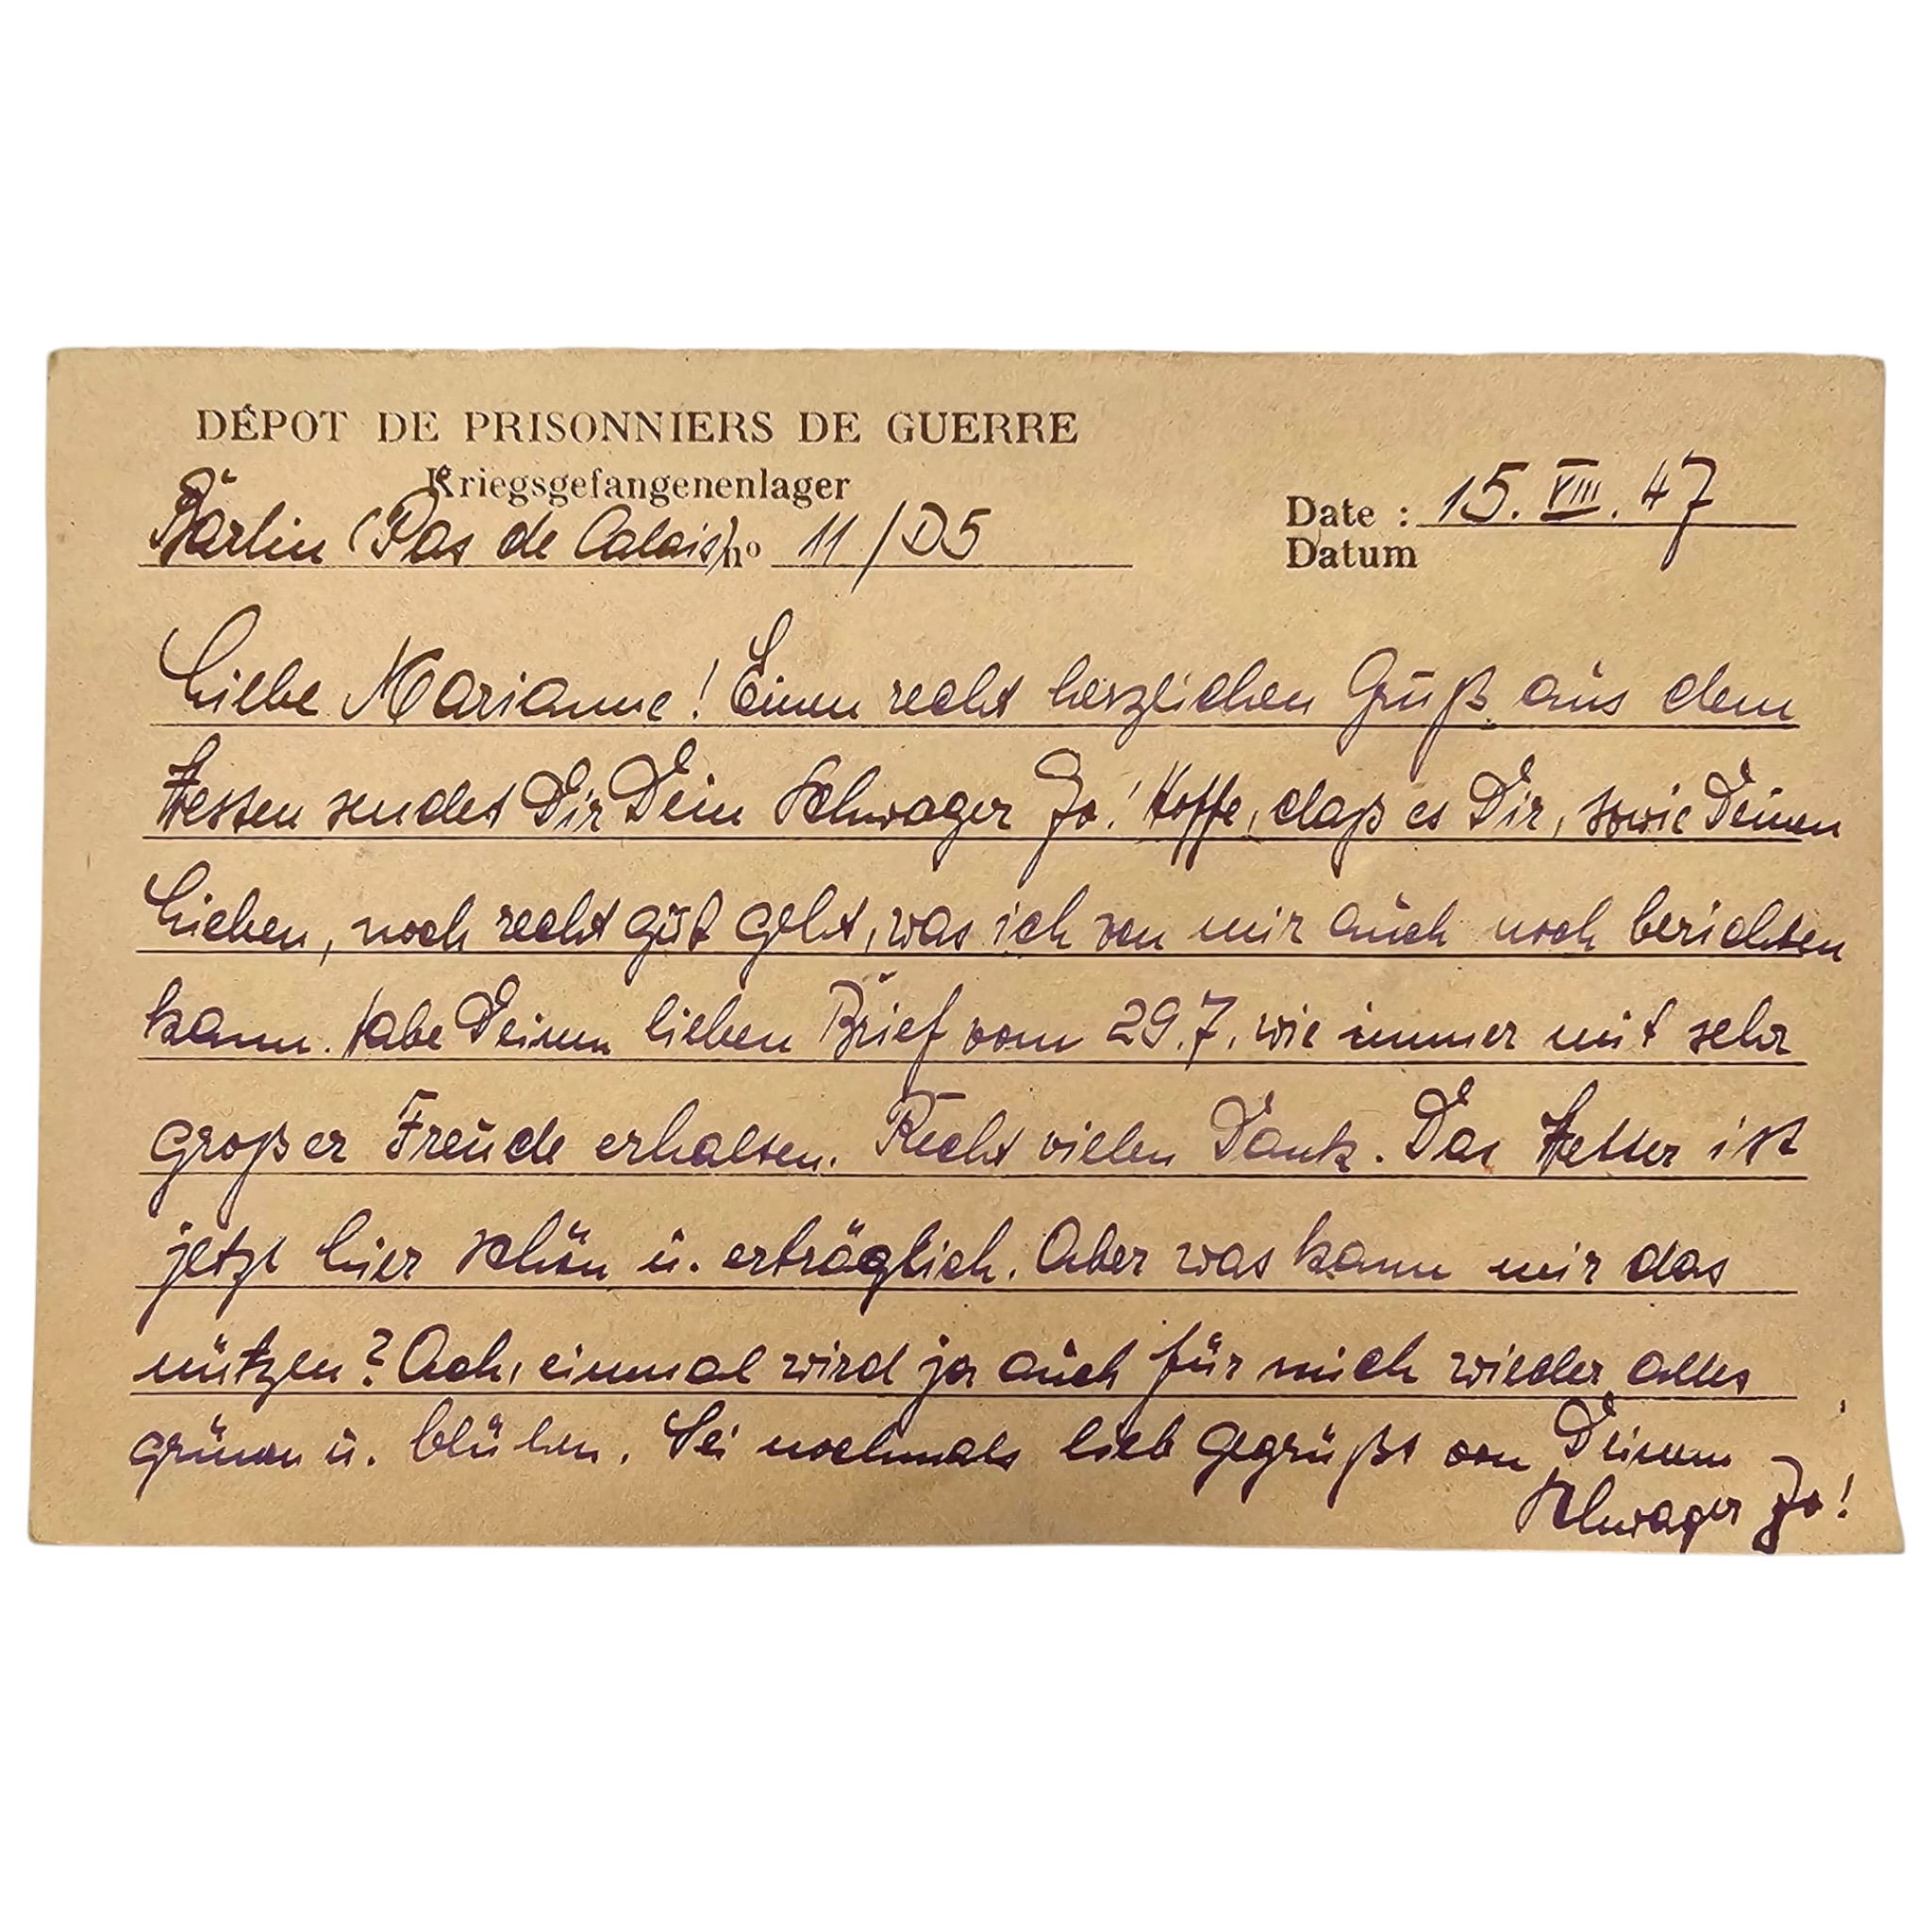 DÉPOT DE PRISONNIERS DE GUERRE
Kriegsgefangenenlager
Barlin (Pas de Calais) no 11/D5
Date : 15. VIII. 47
Datum
Liebe Marianne! Einen recht herzlichen Gruß aus dem
Westen sendet Dir Dein Schwager Jo! Hoffe, daß es Dir, sowie Deinen
Lieben, noch recht gut geht, was ich von mir auch noch berichten
kann. Habe Deinen lieben Brief vom 29.7. wie immer mit sehr
großer Freude erhalten. Recht vielen Dank. Das Wetter ist
jetzt hier schön u. erträglich. Aber was kann mir das
nützen? Ach, einmal wird ja auch für mich wieder alles
grünen u. blühen. Sei nochmals lieb gegrüßt von Deinem
Schwager Jo!